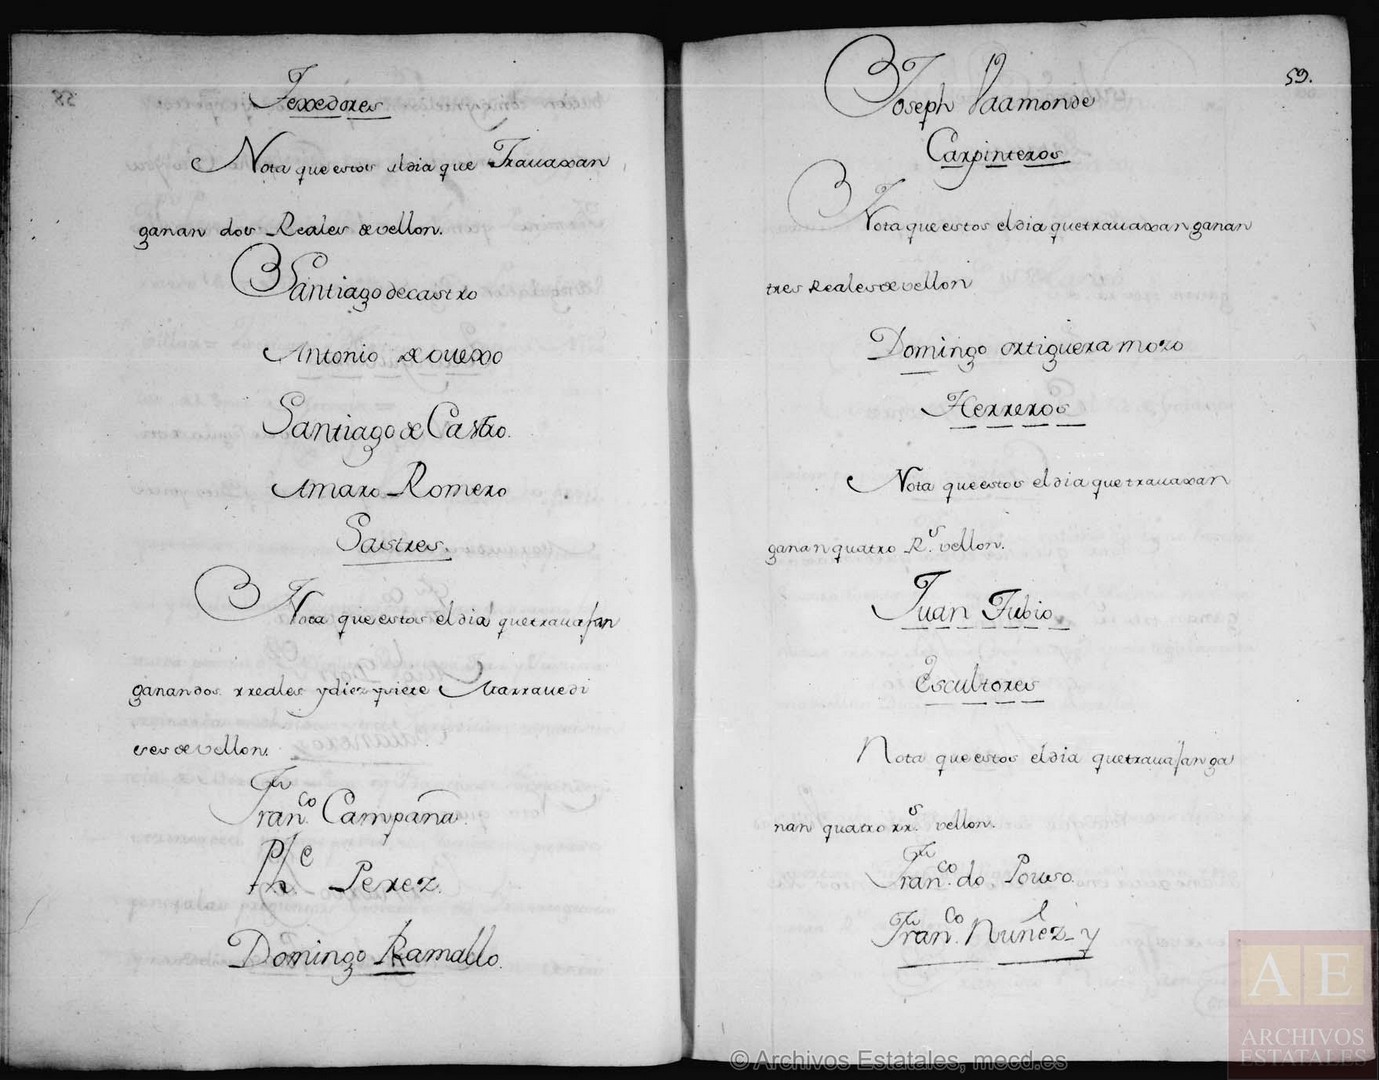 Texedores
Nota que estos el dia que Trauaxan
ganan dos Reales de vellon.
Santiago de castro
Antonio de ouexo
Santiago de Castro.
Amaro Romero
Sastres.
Nota que estos el dia que trauajan
ganan dos rreales y diez y siete Marauedi
ses de vellon.
Fran.co Campaña.
Ph.e Perez.
Domingo Ramallo.
59.
Joseph Vaamonde
Carpinteros
Nota que estos el dia que trauaxan ganan
tres Reales de vellon
Domingo ortiguera mozo
Herreros
Nota que estos el dia que trauaxan
ganan quatro R.s vellon.
Juan Fubio
Escultores
Nota que estos el dia que trauajan ga
nan quatro rr.s vellon.
Fran.co do Pouso.
Fran.co Nuñez y
© Archivos Estatales, mecd.es
AE
ARCHIVOS
ESTATALES